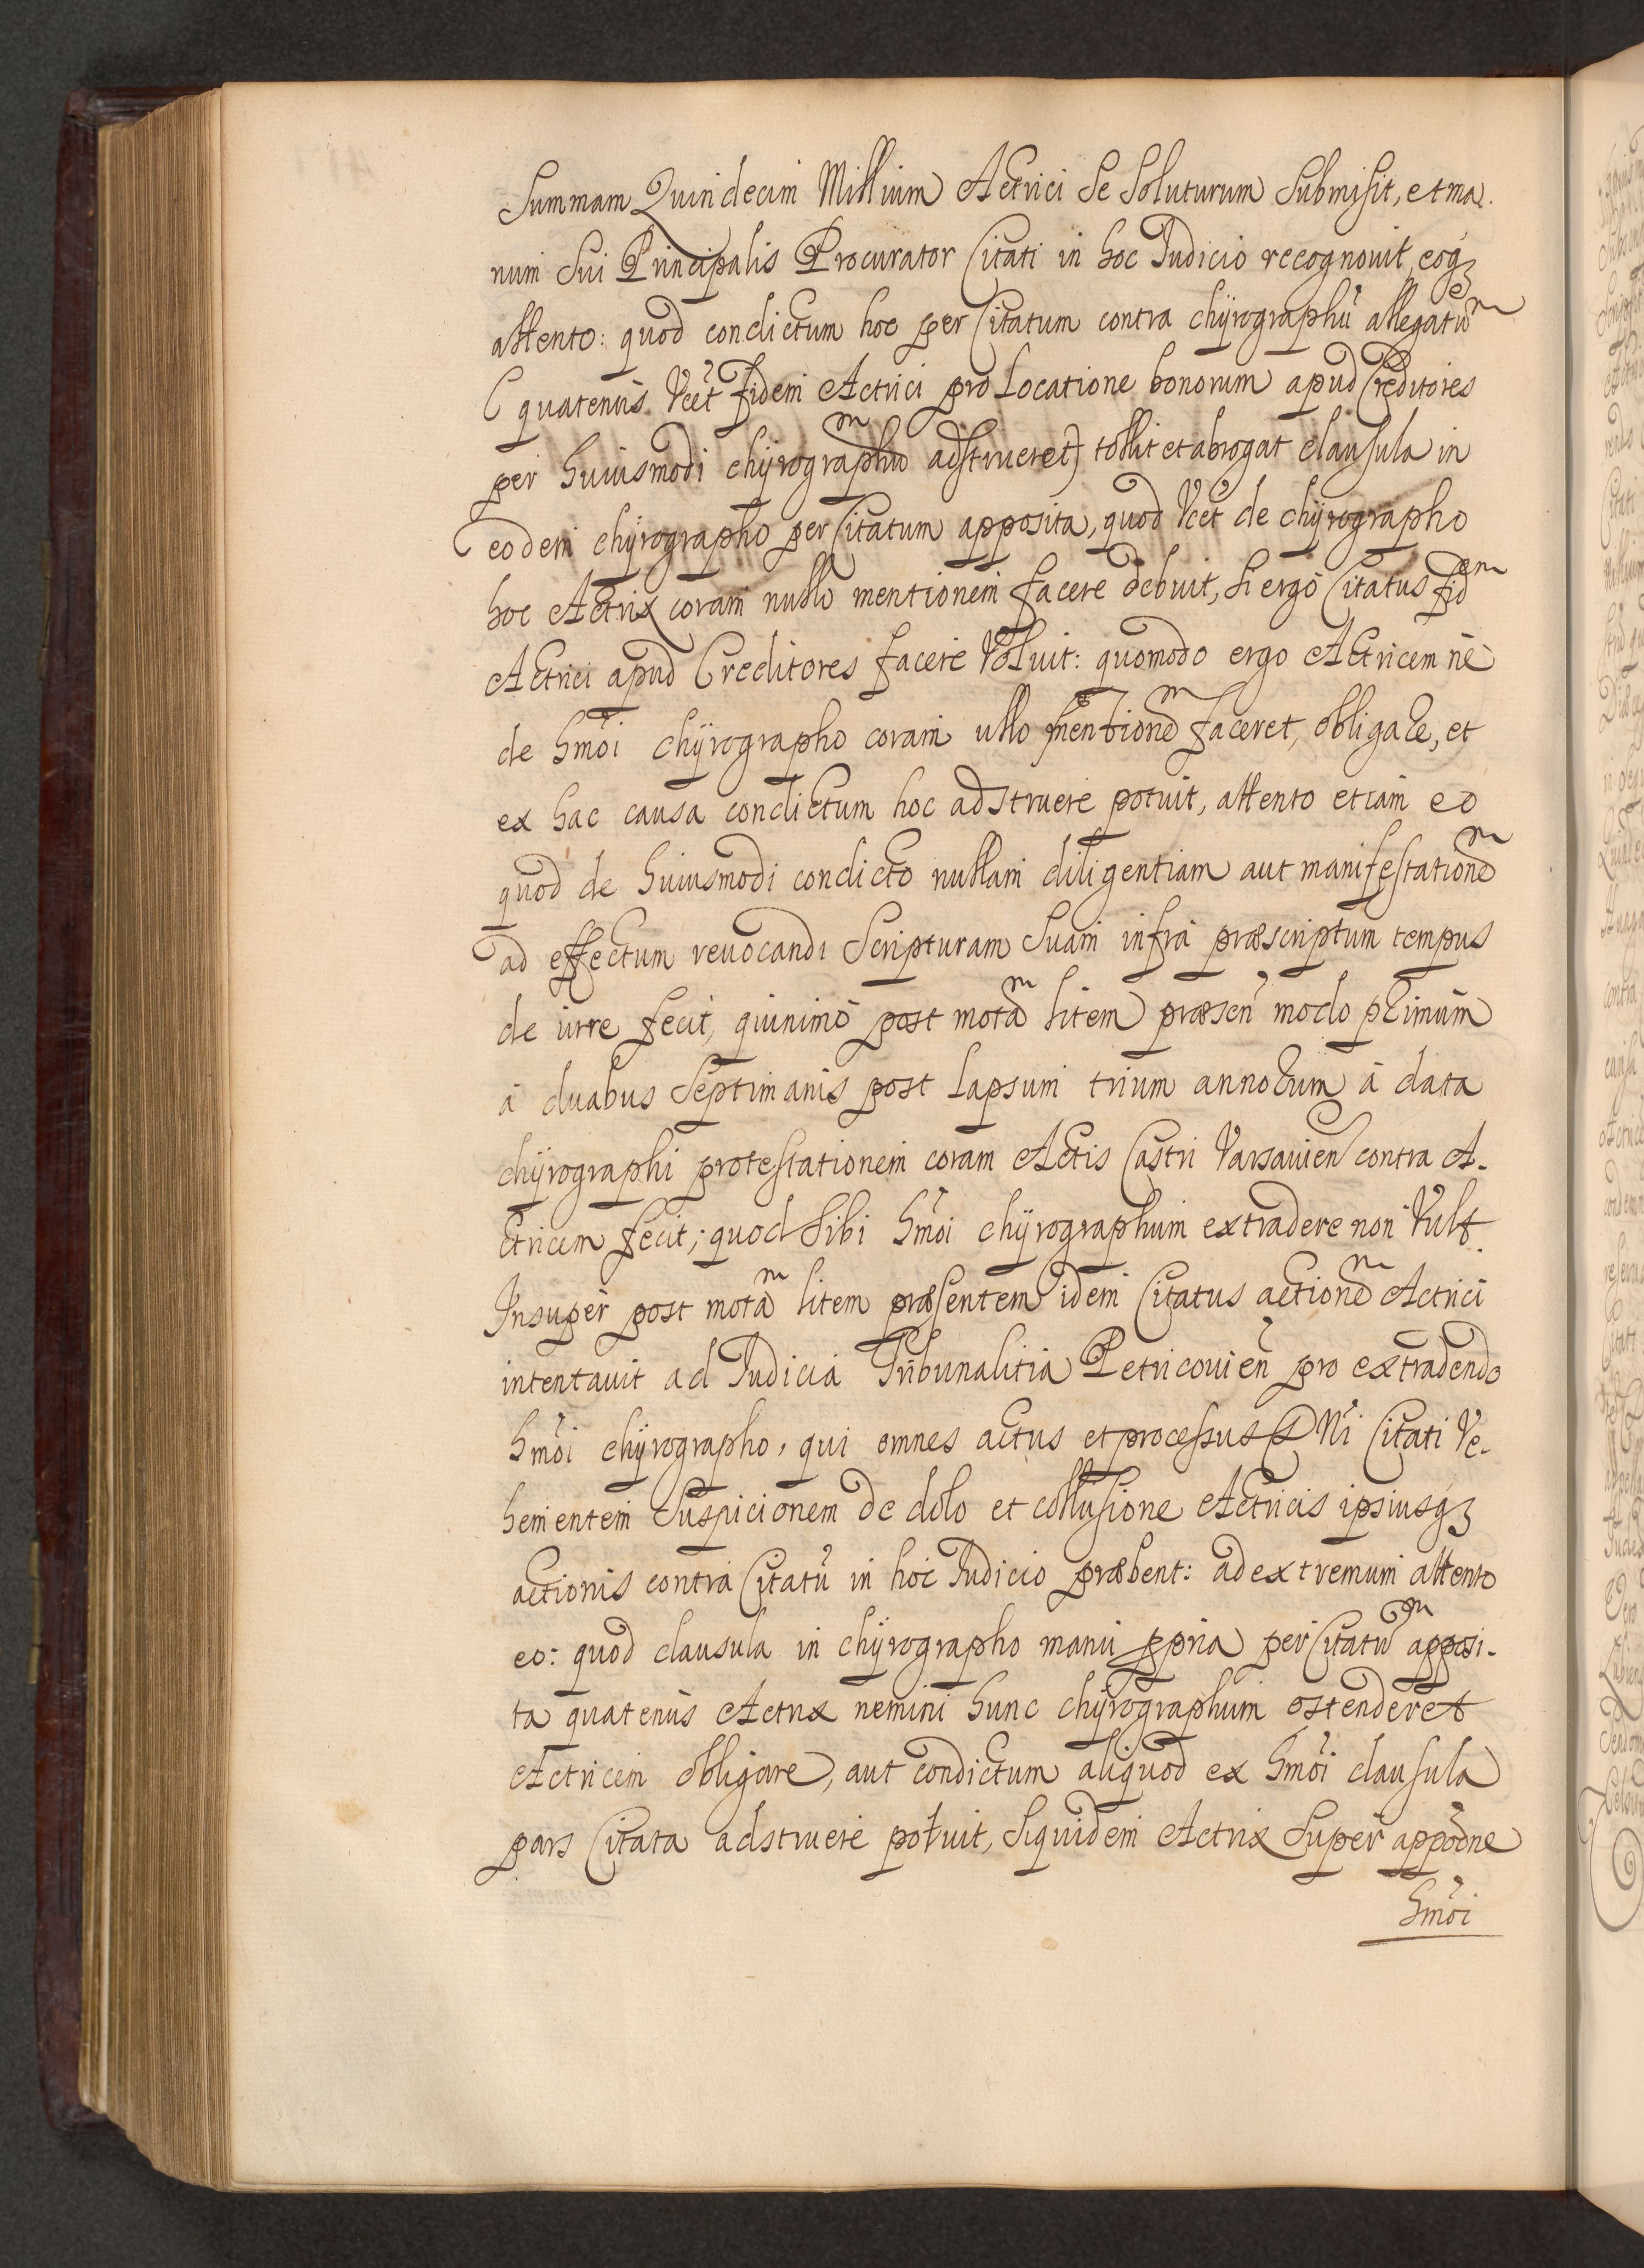 Summam Quindecim Millium Actrici Se Soluturum Submisit, et ma-
num Sui Principalis Procurator Citati in hoc Judicio recognovit, eoq3
attento: quod condictum hoc per Citatum contra chÿrographũ allegatum
(quatenùs Vcèt fidem Actrici pro Locatione bonorum apud Creditores
per huiusmodi chÿrographum adstrueret) tollit et abrogat clausula in
eodem chÿrographo per Citatum apposita, quod Vcèt de chÿrographo
hoc Actrix coram nullo mentionem facere debuit, si ergò Citatus fidem
Actrici apud Creditores facere Voluit: quomodo ergo Actricem nè
de hmõi chÿrographo coram ullo mentionem faceret, obligare, et
ex hac causa condictum hoc adstruere potuit, attento etiam eo
quod de huiusmodi condicto nullam diligentiam aut manifestationem
ad effectum revocandi Scripturam Suam infrà præscriptum tempus
de iure fecit, quinimò post motam litem præsen modo primùm
à duabus Septimanis post Lapsum trium annorum à data
chÿrographi protestationem coram Actis Castri Varsavien contra A-
ctricem fecit; quod Sibi hmõi chÿrographum extradere non Vult.
Insuper post motam litem præsentem idem Citatus actionem Actrici
intentavit ad Judicia Tribunalitia Petricovien pro extradendo
hmõi chÿrographo, qui omnes actus et processus Citati Ve-
hementem Suspicionem de dolo et collusione Actricis ipsiusq3
actionis contra Citatũ in hoc Judicio præbent: ad extremum attento
eo: quod clausula in chÿrographo manu ppria per Citatum apposi-
ta quatenùs Actrix nemini hunc chÿrographum ostenderet
Actricem obligare, aut condictum aliquod ex hmõi clausula
pars Citata adstruere potuit, Siquidem Actrix Super appõne
hmõi